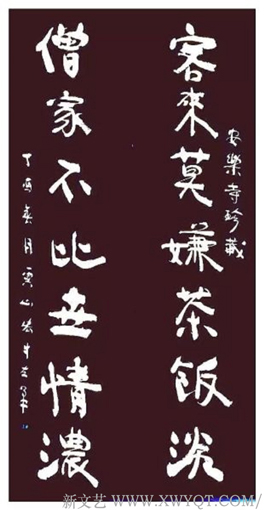 安樂寺珍藏
客來莫嫌茶飯淡
僧家不比世情濃
丁酉月
新文艺 WWW.XWYQT.COM/